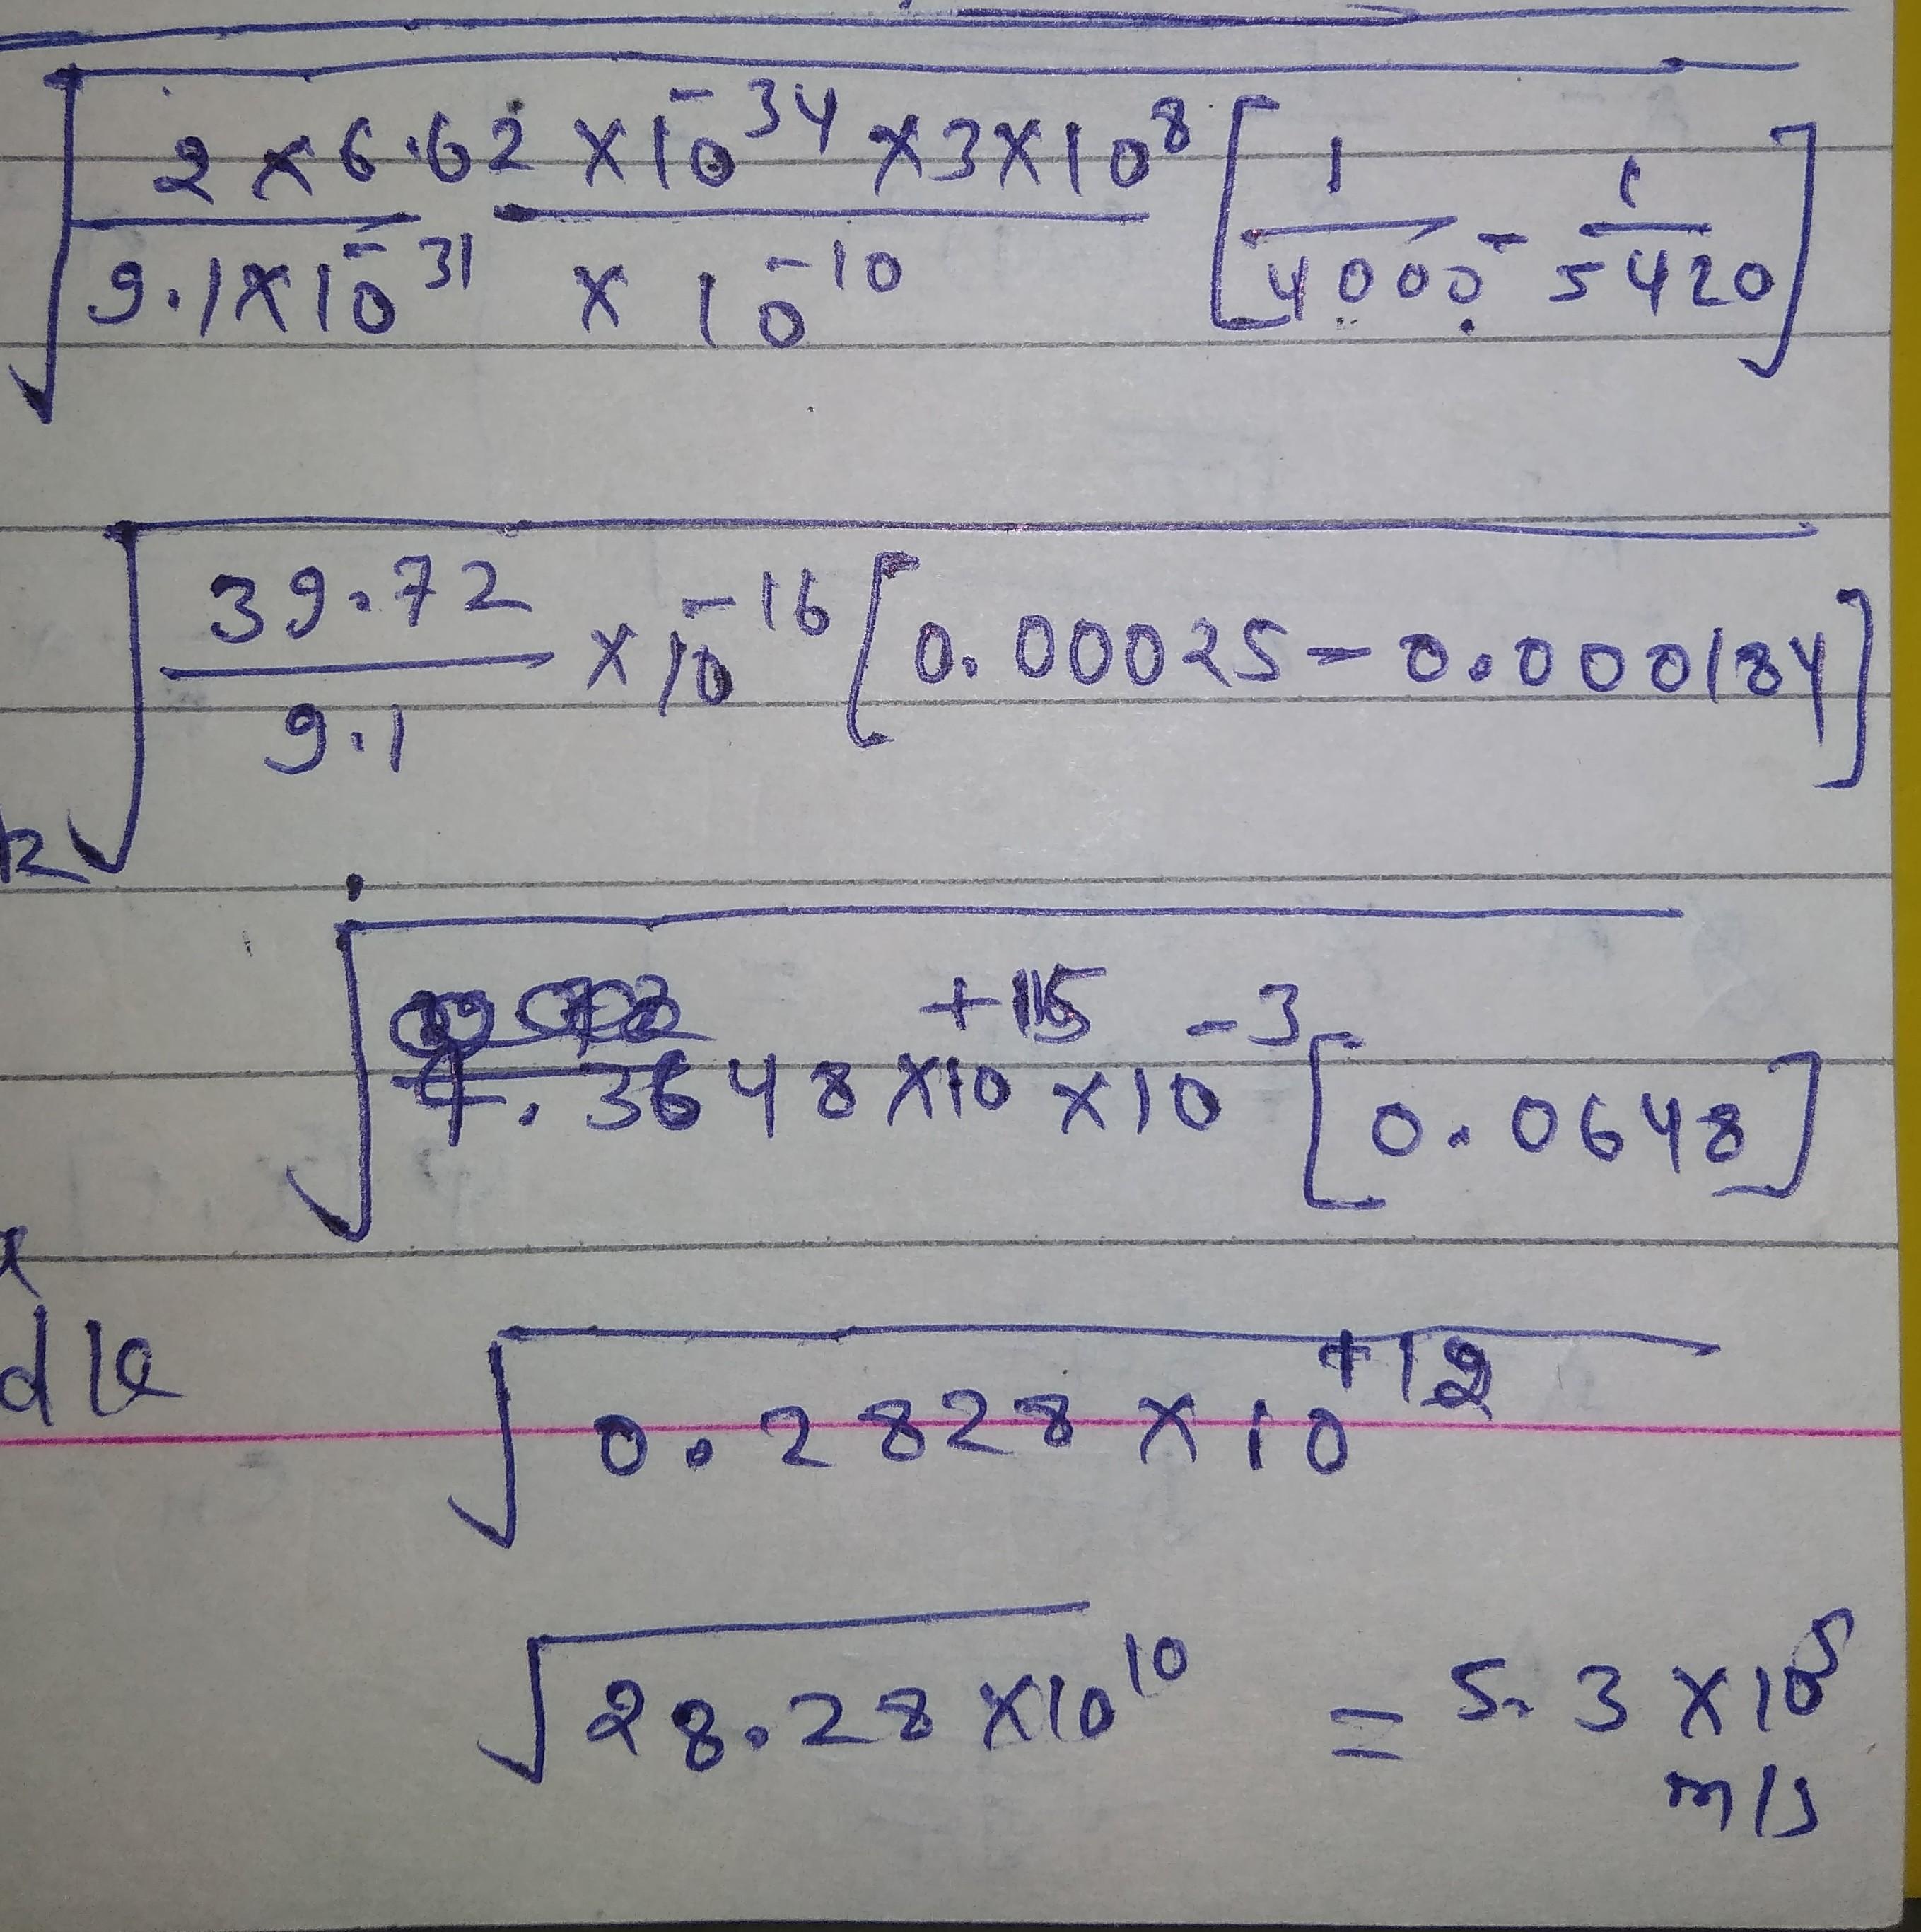 √ 2 × 6.62 × 10^-34 × 3 × 10^8 / 9.1 × 10^-31 × 10^-10 [ 1/4000 - 1/5420 ]
√ 39.72 / 9.1 × 10^-16 [ 0.00025 - 0.000184 ]
√ 4.3648 × 10^+15 × 10^-3 [ 0.0648 ]
√ 0.2828 × 10^+12
√ 28.28 × 10^10 = 5.3 × 10^5
m/s